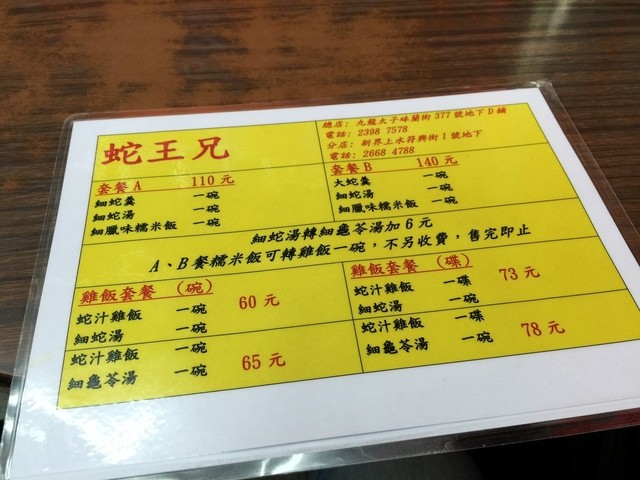 蛇王兄
總店: 九龍太子砵蘭街 377 號地下 D 鋪
電話: 2398 7578
分店: 新界上水符興街 1 號地下
電話: 2668 4788
套餐 A 110 元
細蛇羹 一碗
細蛇湯 一碗
細臘味糯米飯 一碗
套餐 B 140 元
大蛇羹 一碗
細蛇湯 一碗
細臘味糯米飯 一碗
細蛇湯轉細龜苓湯加 6 元
A、B 餐糯米飯可轉雞飯一碗，不另收費，售完即止
雞飯套餐 （碗）
蛇汁雞飯 一碗
細蛇湯 一碗
60 元
雞飯套餐 （碟）
蛇汁雞飯 一碟
細蛇湯 一碗
73 元
蛇汁雞飯 一碗
細龜苓湯 一碗
65 元
蛇汁雞飯 一碟
細龜苓湯 一碗
78 元